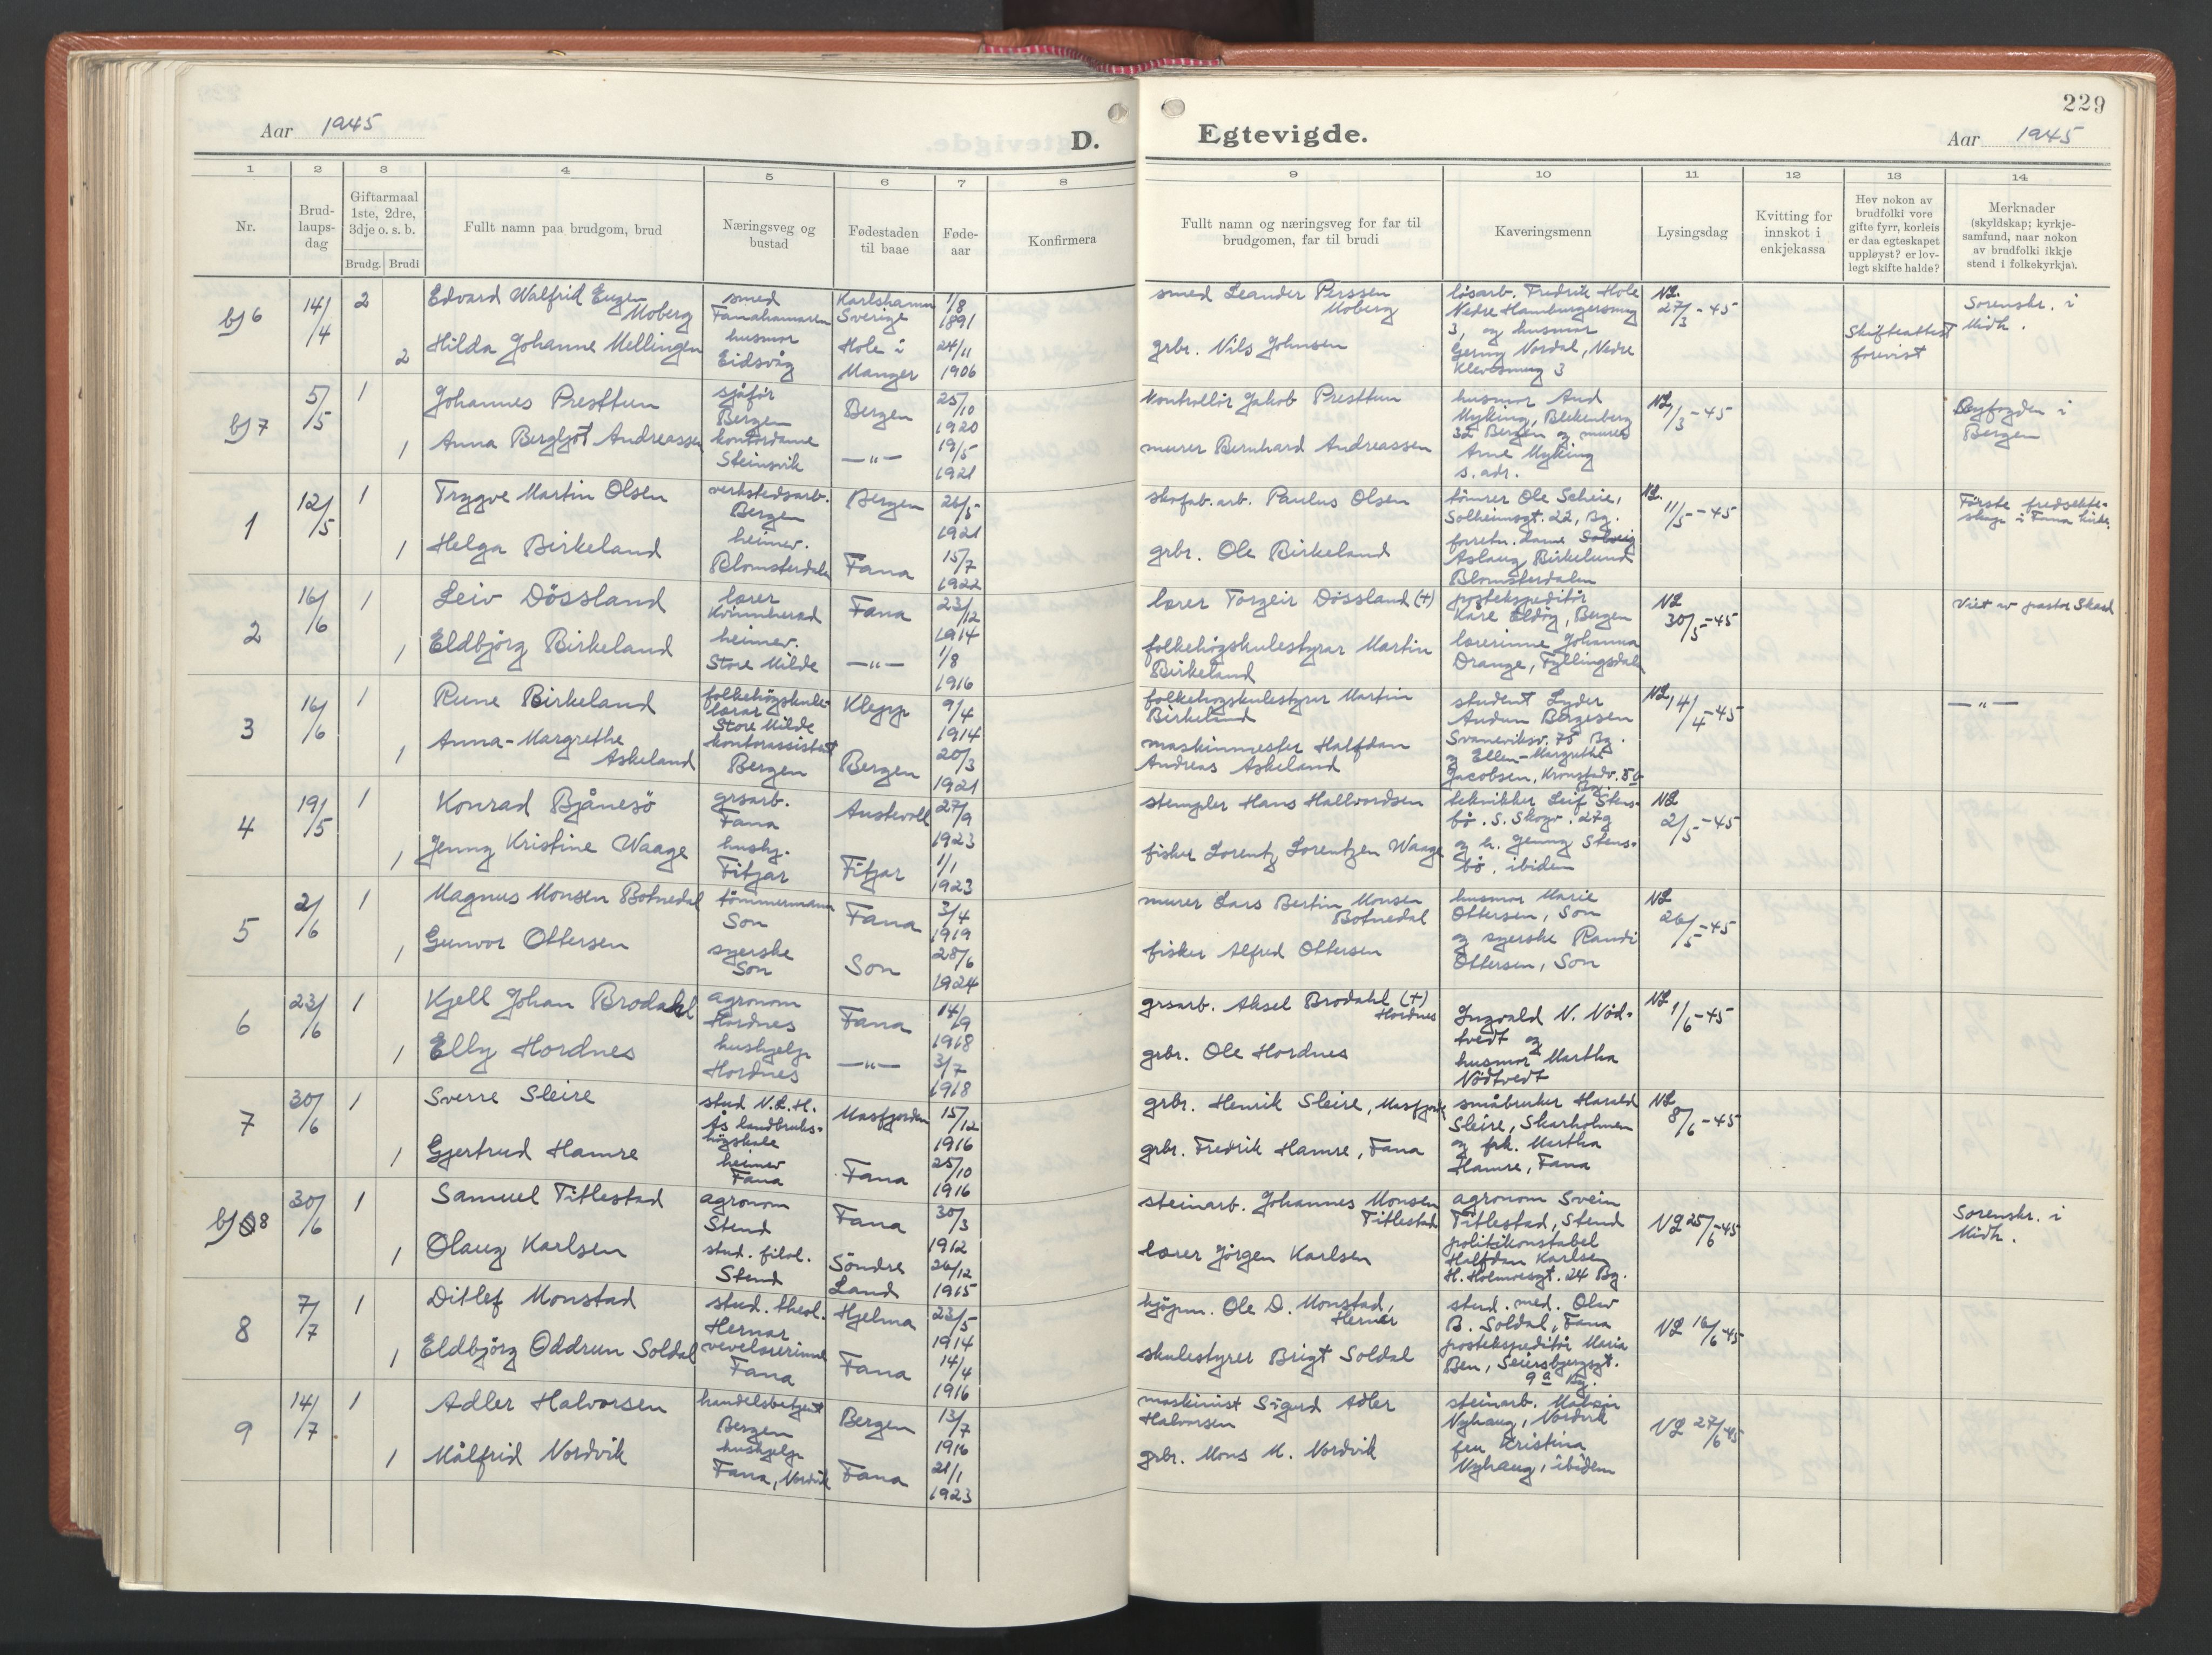 Aar 1945
D.
1 2 3 4 5 6 7 8
Nr.
Brud-
laups-
dag
Giftarmaal
1ste, 2dre,
3dje o. s. b.
Brudg. Brudi
Fullt namn paa brudgom, brud
Næringsveg og
bustad
Fødestaden
til baae
Føde-
aar
Konfirmera
bf 6 14/4 2 Edvard Walfrid Eugen
Moberg
smed
Fanahamaren
Karlshamn
Sverige
1/8
1891
2 Hilda Johanne Mellingen
husmor
Eidsvåg
Hole i
Manger
24/11
1906
bf 7 5/5 1 Johannes Presttun
sjåför
Bergen
Bergen
25/10
1920
1 Anna Bergljot Andreassen
kontordame
Steinsvik
—"—
19/5
1921
1 12/5 1 Trygve Martin Olsen
verkstedsarb.
Bergen
Bergen
26/5
1921
1 Helga Birkeland
heimev.
Blomsterdalen
Fana
15/7
1922
2 16/6 1 Leiv Dössland
lærer
Kvinnherad
Fana
23/12
1914
1 Eldbjörg Birkeland
heimev.
Store Milde
—"—
1/8
1916
3 16/6 1 Rune Birkeland
folkehögskule-
lærar
Store Milde
Klepp
9/4
1914
1 Anna-Margrethe
Askeland
kontorassistent
Bergen
Bergen
20/3
1921
4 19/5 1 Konrad Bjånesö
grsarb.
Fana
Austevoll
27/9
1923
1 Jenny Kristine Waage
hushj.
Fitjar
Fitjar
1/1
1923
5 2/6 1 Magnus Monsen Botnedal
tömmermann
Son
Fana
3/4
1919
1 Gunvor Ottersen
syerske
Son
Son
28/6
1924
6 23/6 1 Kjell Johan Brodahl
agronom
Hordnes
Fana
14/9
1918
1 Elly Hordnes
hushjelp
Hordnes
—"—
3/7
1918
7 30/6 1 Sverre Sleire
stud N.L.H.
Ås landbruks-
högskule
Masfjorden
15/12
1916
1 Gjertrud Hamre
heimev
Fana
Fana
25/10
1916
bf 8 30/6 1 Samuel Titlestad
agronom
Stend
Fana
30/3
1912
1 Olaug Karlsen
stud. filol.
Stend
Söndre
Land
26/12
1915
8 7/7 1 Ditlef Monstad
stud. theol.
Hernar
Hjelma
23/5
1914
1 Eldbjörg Oddrun Soldal
vevelærerinne
Fana
Fana
14/4
1916
9 14/7 1 Adler Halvorsen
handelsbetjent
Bergen
Bergen
13/7
1916
1 Målfrid Nordvik
hushjelp
Fana, Nordvik
Fana
21/1
1923
229
Egtevigde.
Aar 1945
9 10 11 12 13 14
Fullt namn og næringsveg for far til
brudgomen, far til brudi
Kaveringsmenn
Lysingsdag
Kvitting for
innskot i
enkjekassa
Hev nokon av
brudfolki vore
gifte fyrr, korleis
er daa egteskapet
uppløyst? er lov-
legt skifte halde?
Merknader
(skyldskap; kyrkje-
samfund, naar nokon
av brudfolki ikkje
stend i folkekyrkja).
smed Leander Perssen
Moberg
grbr. Nils Johnsen
løsarb. Fredrik Hole
Nedre Hamburgersmug
3, og husmor
Gerny Nordal, Nedre
Klevesmug 3
NL.
27/3-45
Skifteattest
forevist
Sorenskr. i
Midh.
Kontrollör Jakob Presttun
murer Bernhard Andreassen
husmor Aud
Myking, Blekenberg
32 Bergen og murer
Arne Myking
s. adr.
NL
/3-45
Byfogden i
Bergen
skofab.arb. Paulus Olsen
grbr. Ole Birkeland
tömrer Ole Scheie,
Solheimsgt. 22, Bg.
forretn. dame
Aslaug Birkelund
Blomsterdalen
NL.
11/5-45
Förste fredsekte-
skap i Fana kirke.
lærer Torgeir Dössland (+)
folkehögskulestyrar Martin
Birkeland
postekspeditör
Kåre Eldöy, Bergen
lærerinne Johanna
Drange, Fyllingsdal
NL
30/5-45
Viet av pastor Skard
folkehogskulestyrer Martin
Birkeland
maskinmester Halfdan
Andreas Askeland
student Lyder
Audun Børgesen
Svaneviksv. 75 Bg.
og Ellen-Margrethe
Jacobsen, Kronstadv. 56
Bg.
NL 14/4-45
—"—
stempler Hans Hallvordsen
fisker Lorentz Lorentzen Waage
tekniker Leif Stens-
bö. S. Skogv. 27g
og fr. Jenny Stens-
bö. ibidem
NL
2/5-45
murer Lars Bertin Monsen
Botnedal
fisker Alfred Ottersen
husmor Marie
Ottersen, Son
og syerske Randi
Ottersen, Son
NL
26/5-45
grsarb. Aksel Brodahl (+)
Hordnes
grbr. Ole Hordnes
Ingvald N. Nöd-
tvedt og
husmor Martha
Nödtvedt
NL 1/6-45
grbr. Henrik Sleire, Masfjord
grbr. Fredrik Hamre, Fana
småbruker Harald
Sleire, Skarholmen
og frk. Martha
Hamre, Fana
NL
8/6-45
steinarb. Johannes Monsen
Titlestad
lærer Jörgen Karlsen
agronom Svein
Titlestad, Stend
politikonstabel
Halfdan Karlsen
H. Holmvesgt. 24 Bg.
NL 25/6-45
Sorenskr. i
Midh.
kjöpm. Ole D. Monstad,
Hernar
skulestyrer Brigt Soldal
stud. med. Olav
B. Soldal, Fana
postekspeditör Maria
Ben, Seiersbjergsgt.
9a Bg.
NL 16/6-45
maskinist Sigurd Adler
Halvorsen
grbr. Mons M. Nordvik
steinarb.
Nyhaug, Nordvik
fru Kristina
Nyhaug, ibidem
NL 27/6-45